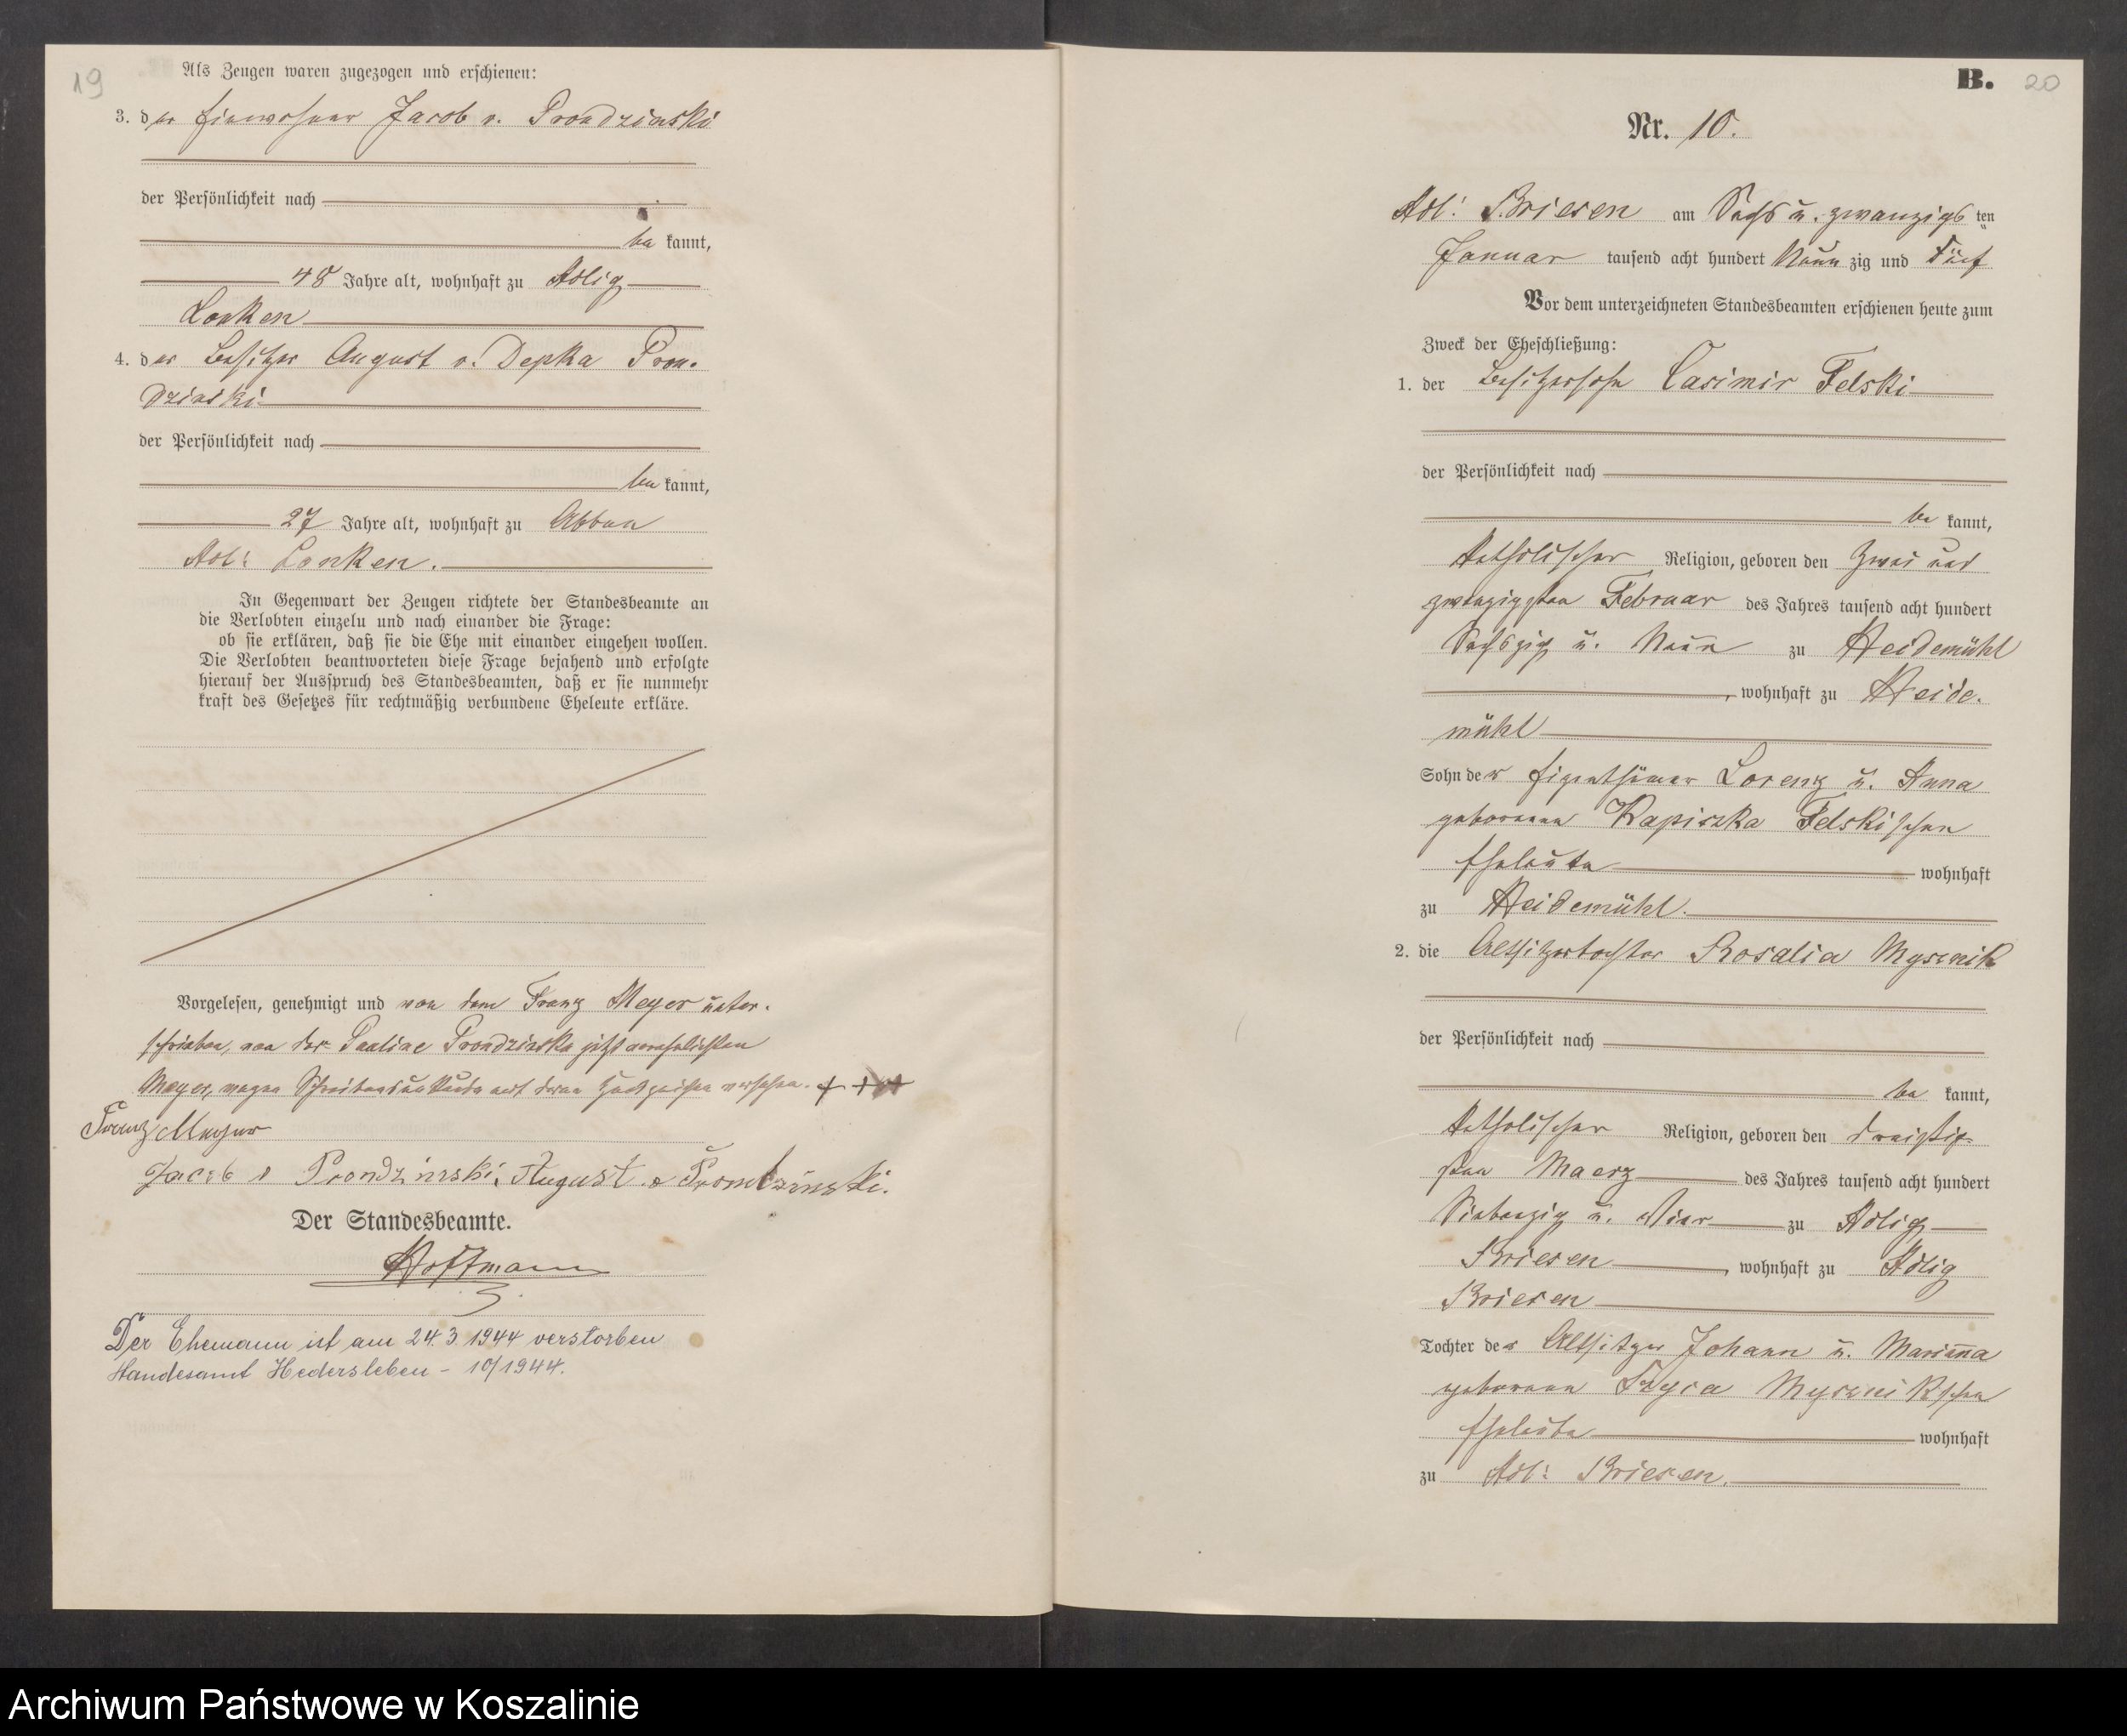 19
Als Zeugen waren zugezogen und erschienen:
3. der Einwohner Jacob v. Prondzinski
der Persönlichkeit nach
be kannt,
48 Jahre alt, wohnhaft zu Adlig
Lonken
4. der Besitzer August v. Depka Pron-
dzinski
der Persönlichkeit nach
be kannt,
27 Jahre alt, wohnhaft zu Abbau
Adl: Lonken.
In Gegenwart der Zeugen richtete der Standesbeamte an
die Verlobten einzeln und nach einander die Frage:
ob sie erklären, daß sie die Ehe mit einander eingehen wollen.
Die Verlobten beantworteten diese Frage bejahend und erfolgte
hierauf der Ausspruch des Standesbeamten, daß er sie nunmehr
kraft des Gesetzes für rechtmäßig verbundene Eheleute erkläre.
Vorgelesen, genehmigt und von dem Franz Meyer unter-
schrieben, von der Pauline Prondzinska jetzt verehelichten
Meyer, wegen Schreibensunkunde mit deren Handzeichen versehen. +++
Franz Meyer
Jacob v Prondzinski, August v Prondzinski.
Der Standesbeamte.
Hoffmann
Der Ehemann ist am 24.3.1944 verstorben
Standesamt Hedersleben - 10/1944.
B. 20
Nr. 10.
Adl: Briesen am Sechs u. zwanzigs ten
Januar tausend acht hundert Neun zig und Fünf
Vor dem unterzeichneten Standesbeamten erschienen heute zum
Zweck der Eheschließung:
1. der Besitzersohn Casimir Felski
der Persönlichkeit nach
be kannt,
katholischer Religion, geboren den Zwei und
zwanzigsten Februar des Jahres tausend acht hundert
Sechszig u. Neun zu Heidemühl
, wohnhaft zu Heide-
mühl
Sohn der Eigenthümer Lorenz u. Anna
geborenen Kapiszka Felskischen
Eheleute wohnhaft
zu Heidemühl.
2. die Altsitzertochter Rosalia Mysznik
der Persönlichkeit nach
be kannt,
katholischer Religion, geboren den dreißig-
sten Maerz des Jahres tausend acht hundert
Siebenzig u. Vier zu Adlig
Briesen, wohnhaft zu Adlig
Briesen
Tochter der Altsitzer Johann u. Marianna
geborenen Szyca Mysznikschen
Eheleute wohnhaft
zu Adl: Briesen.
Archiwum Państwowe w Koszalinie